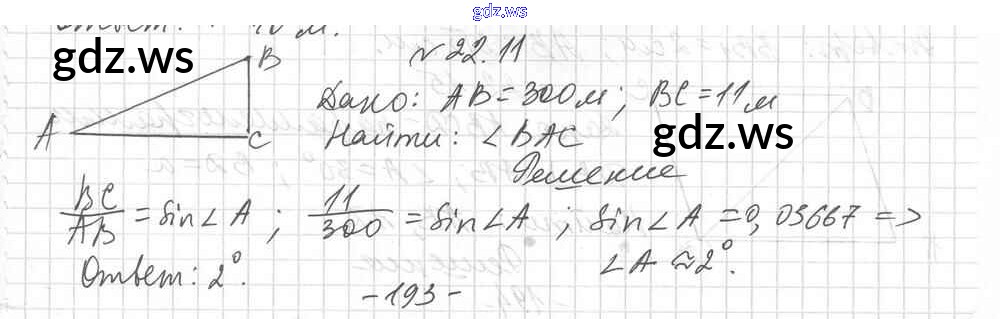 gdz.ws
Ответ: 10 м.
gdz.ws
№ 22.11
B
Дано: AB = 300 м; BC = 11 м
A
C
Найти: ∠BAC
gdz.ws
Решение
BC/AB = sin∠A; 11/300 = sin∠A; sin∠A = 0,03667 =>
∠A ≈ 2°.
Ответ: 2°.
-193-